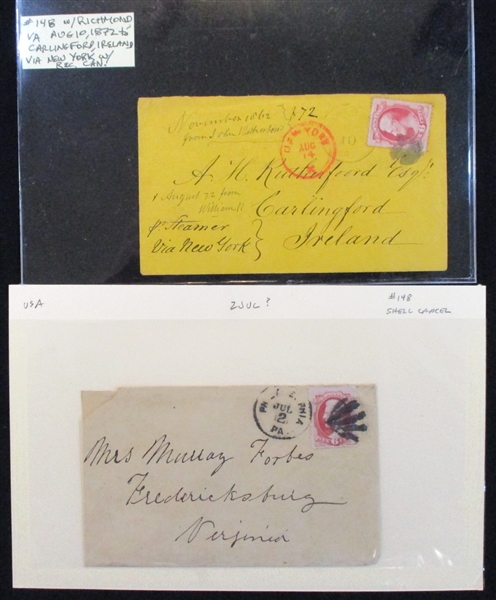 #148 W/ RICHMOND
VA AUG 10, 1872 to
CARLINGFORD, IRELAND
VIA NEW YORK W/
REC. CAN.
November 1862
from John Rutherfoord
1872
NEW YORK
AUG
14
10
A. H. Rutherfoord Esqr.
August 72 from
Carlingford
pr Steamer
Ireland
Via New York
USA
2 JUL ?
#148
SHELL CANCEL
JUL
2
PA
Mrs Murray Forbes
Fredericksburg
Virginia